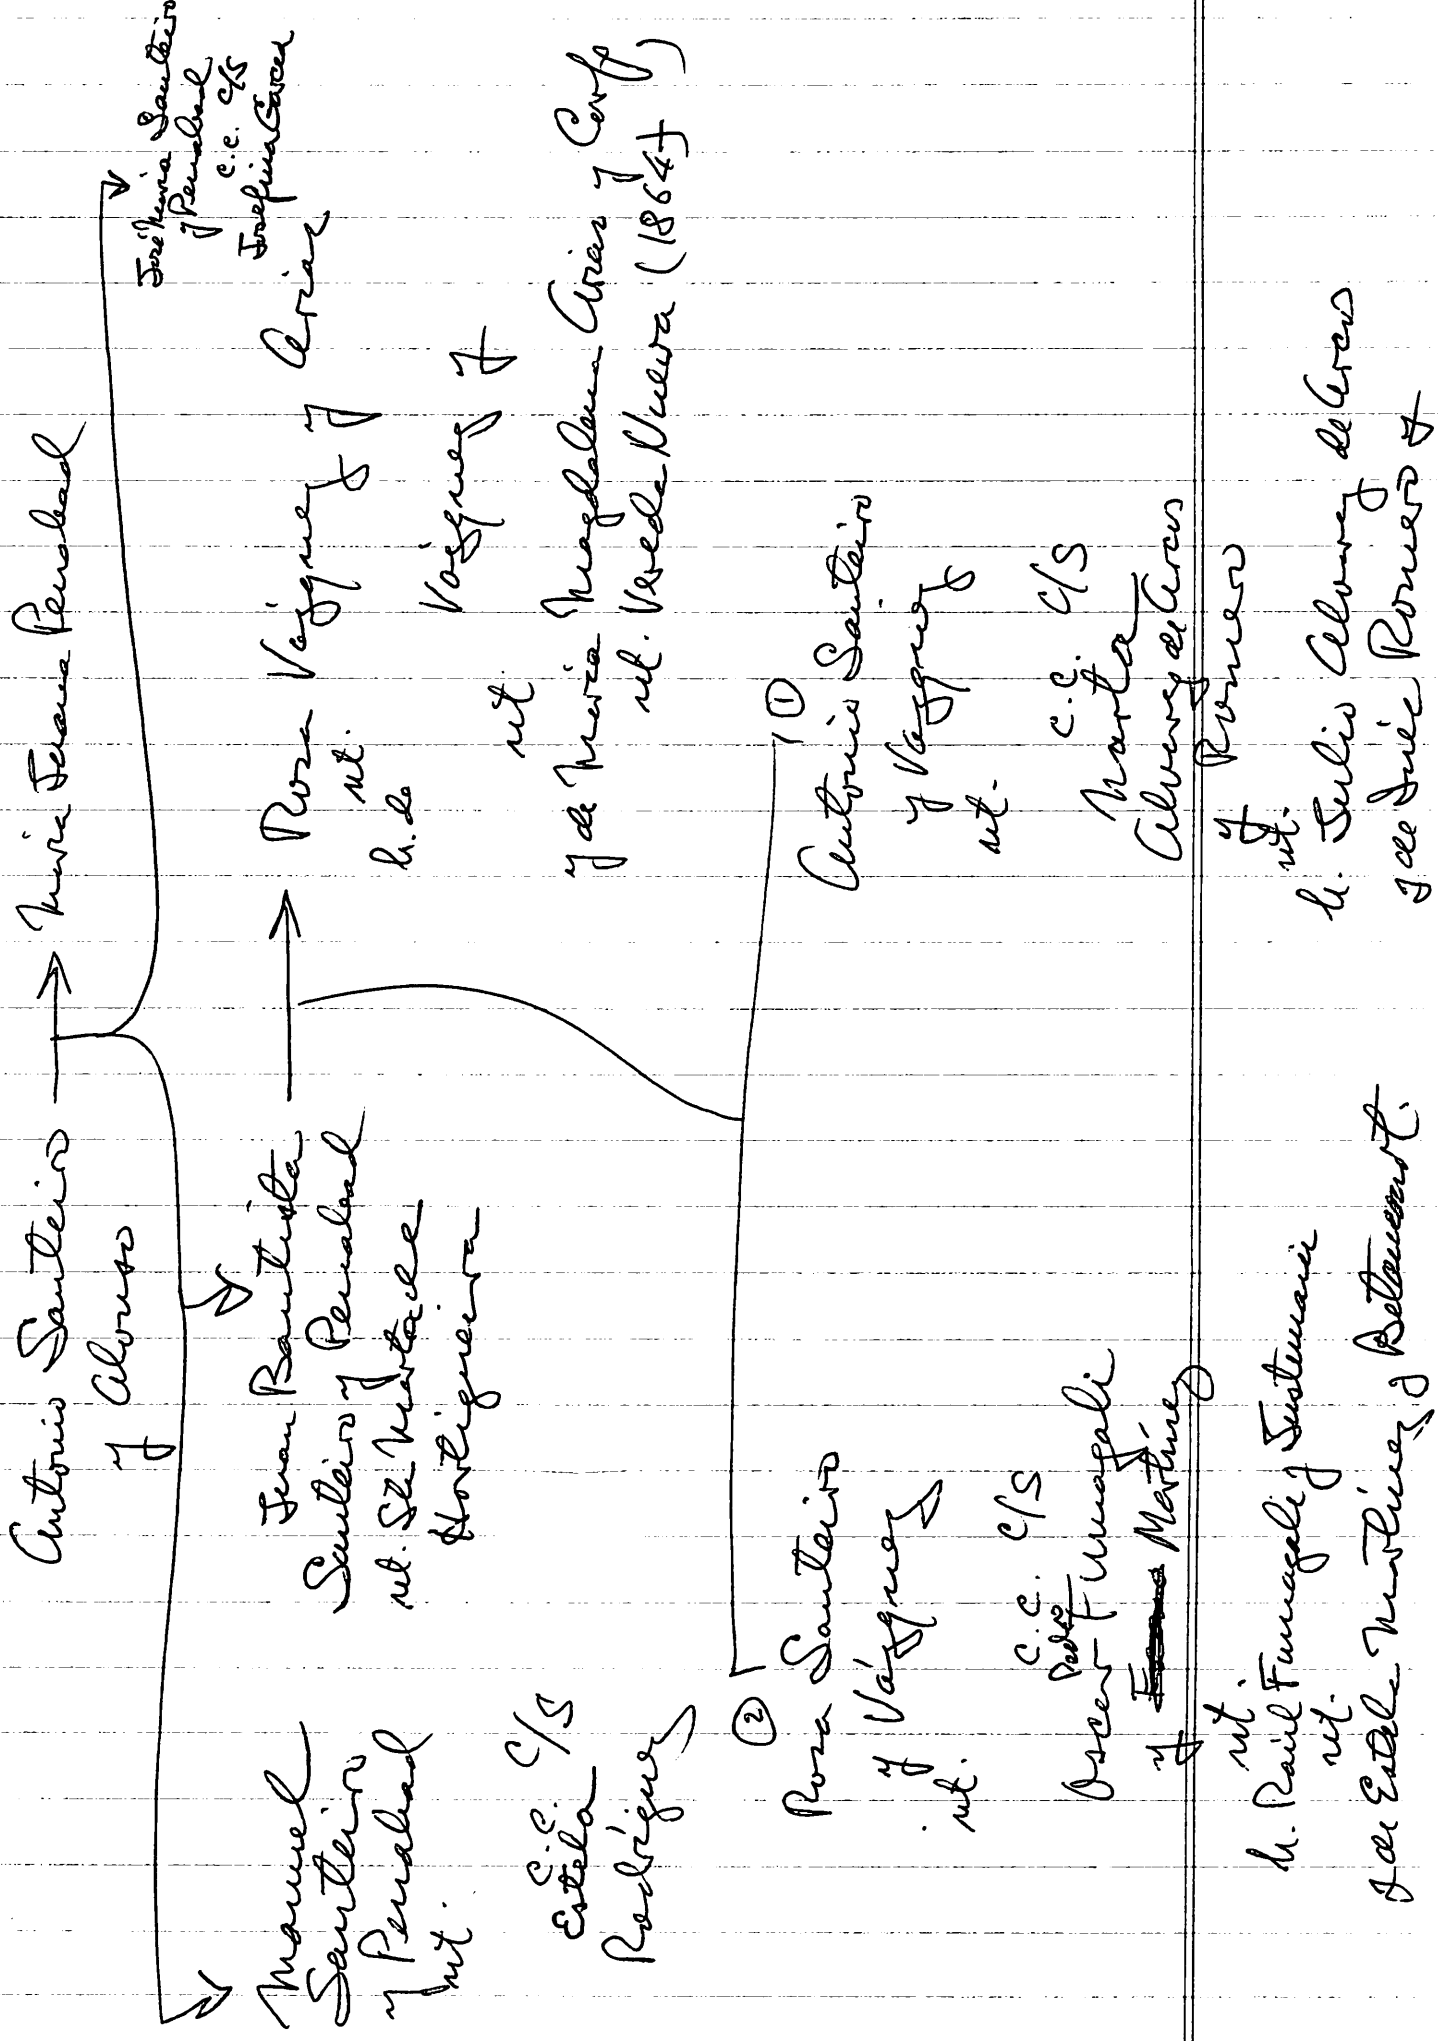 Antonio Santeiro
y Alonso
Maria Juana Penabad
Manuel
Santeiro
y Penabad
nt.
C.C. C/S
Estela
Rodríguez
Juan Bautista
Santeiro y Penabad
nt. Sta Marta de
Hortigueira
Rosa Vázquez y Arias
nt.
h. de
Vázquez y
nt.
y de Maria Magdalena Arias y
nt. Vereda Nueva (1864)
José Maria Santeiro
y Penabad
C.C. C/S
Josefina Garcia
②
Rosa Santeiro
y Vázquez
nt.
C.C. C/S
Oscar Pedro Fumagali
y Martínez
nt.
h. Raúl Fumagali y Justiniani
nt.
y de Estela Martínez y Betancourt.
①
Antonio Santeiro
y Vazquez
nt.
C.C. C/S
Marta
Alvarez de Arcos
y Romero
nt.
h. Julio Alvarez de Arcos
y de Romero y